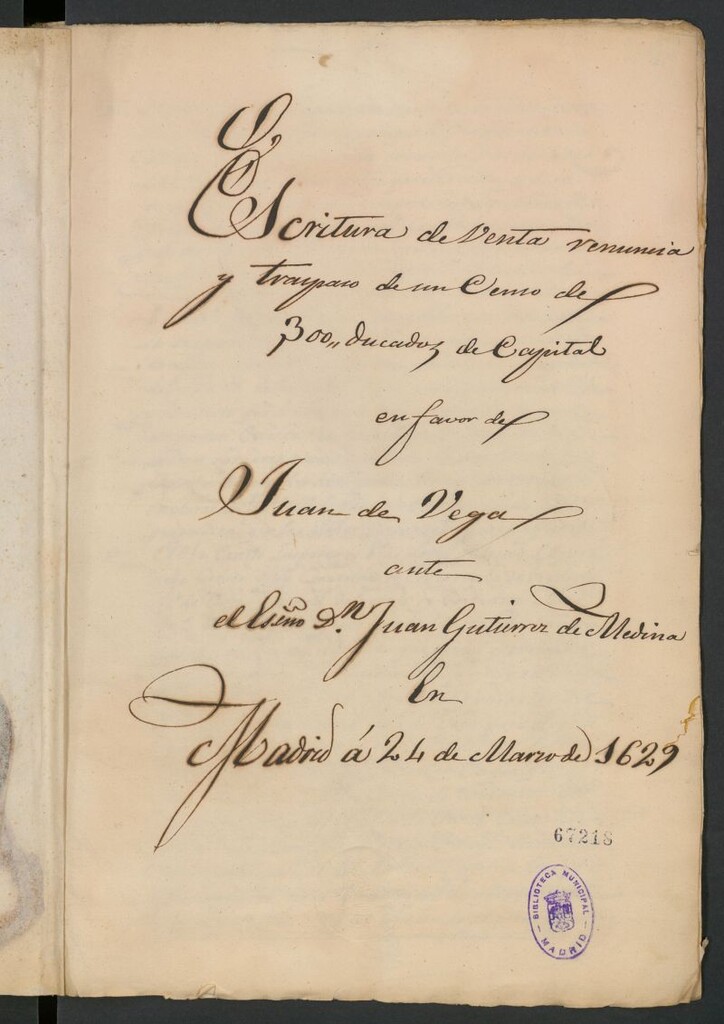 Escritura de Venta renuncia
y traspaso de un Censo de
300,, ducados de Capital
en favor de
Juan de Vega
ante
el Esño Dn. Juan Gutierrez de Medina
En
Madrid á 24 de Marzo de 1629
67218
BIBLIOTECA MUNICIPAL
MADRID